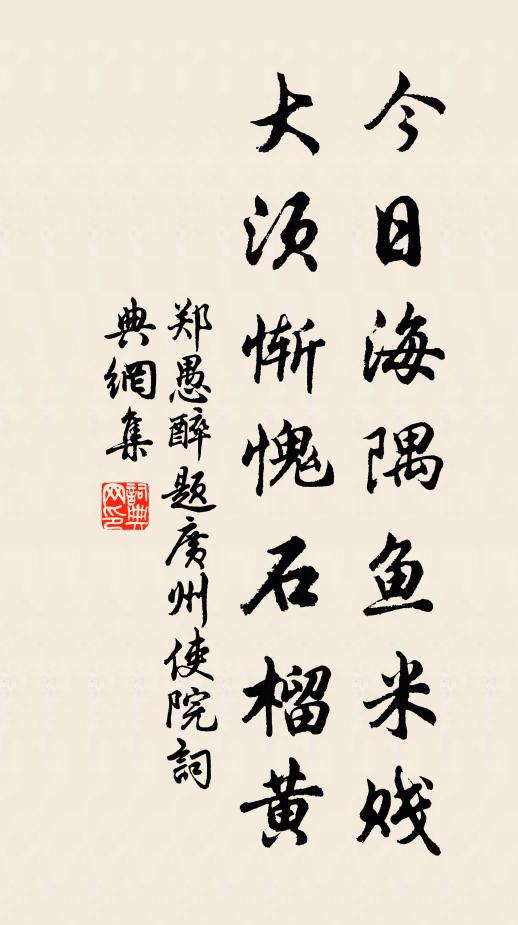 今日海隅鱼米贱
大须惭愧石榴黄
郑愚醉题廣州使院詞
典網集
詞典网印